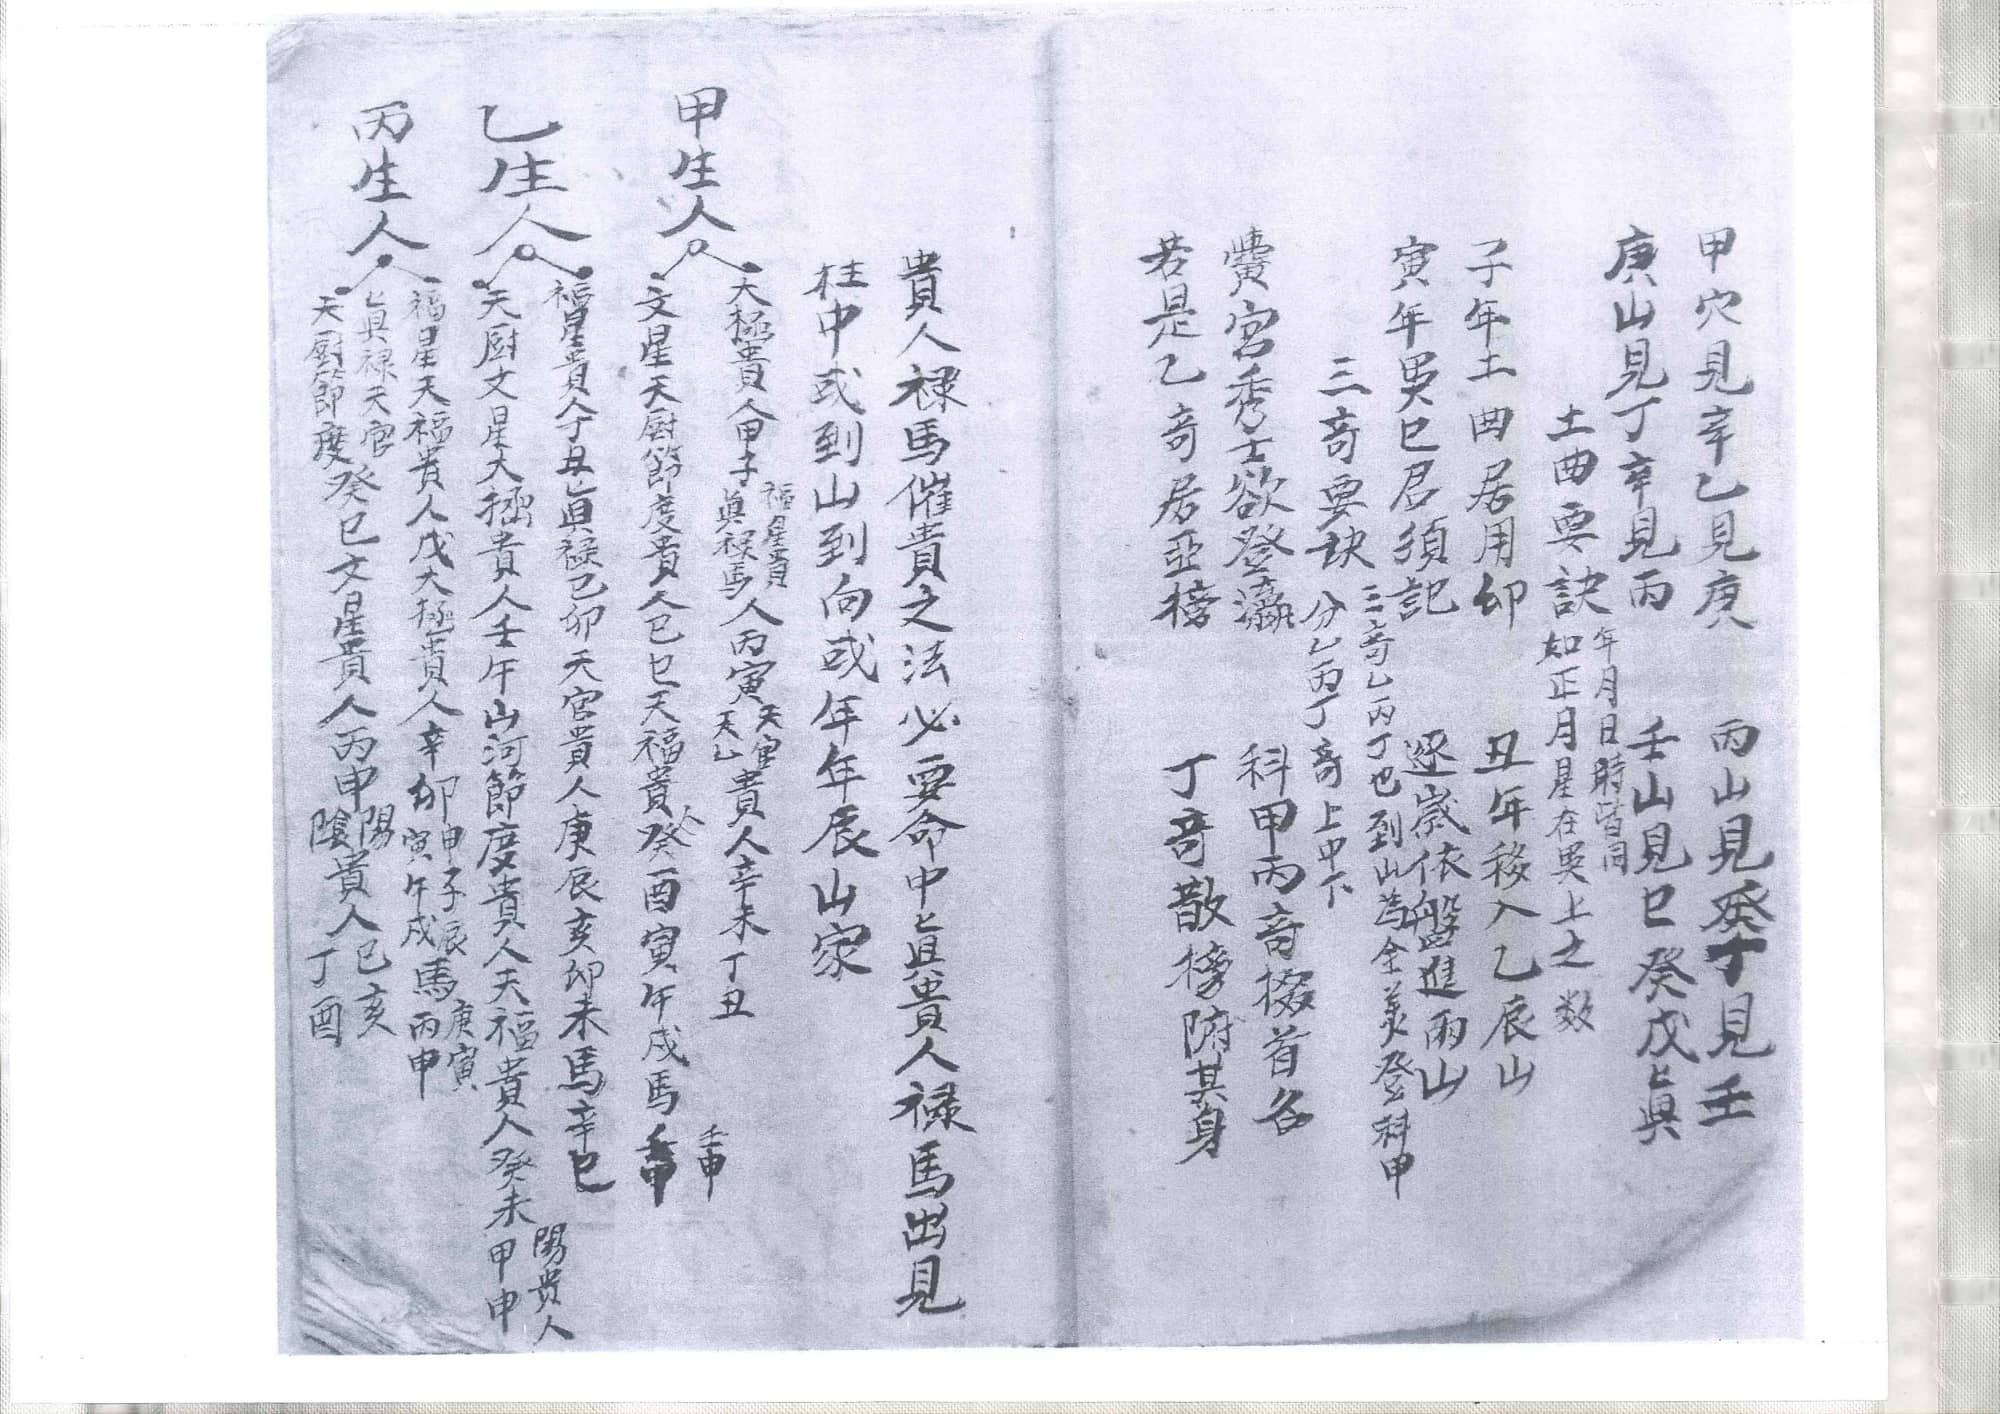 甲穴見辛乙見庚　丙山見癸丁見壬
庚山見丁辛見丙　壬山見巳癸戊上眞
土曲要訣
年月日時皆同
如正月星在巽上之数
子年土曲居用卯　丑年移入乙辰山
寅年巽巳君須記　逐歲依盤進兩山
三奇要訣
三奇乙丙丁也到山為全美登科甲
分乙丙丁奇上中下
黌宮秀士欲登瀛　科甲丙奇掇首名
若是乙奇居亞榜　丁奇散榜附其身
貴人禄馬催貴之法必要命中上眞貴人禄馬出見
柱中或到山到向或年年辰山家
甲生人
天極貴人甲子福星貴眞禄馬人丙寅天官天乙貴人辛未丁丑
文星天厨節度貴人己巳天福貴人癸酉寅午戌馬壬申
壬申
乙生人
福星貴人丁丑上眞禄己卯天官貴人庚辰亥卯未馬辛巳
天厨文星太極貴人壬午山河節度貴人天福貴人癸未甲申
陽貴人
丙生人
福星天福貴人戊太極貴人辛卯申子辰寅午戌馬庚寅丙申
上眞禄天官
天厨節度癸巳文星貴人丙申陽陰貴人己亥丁酉